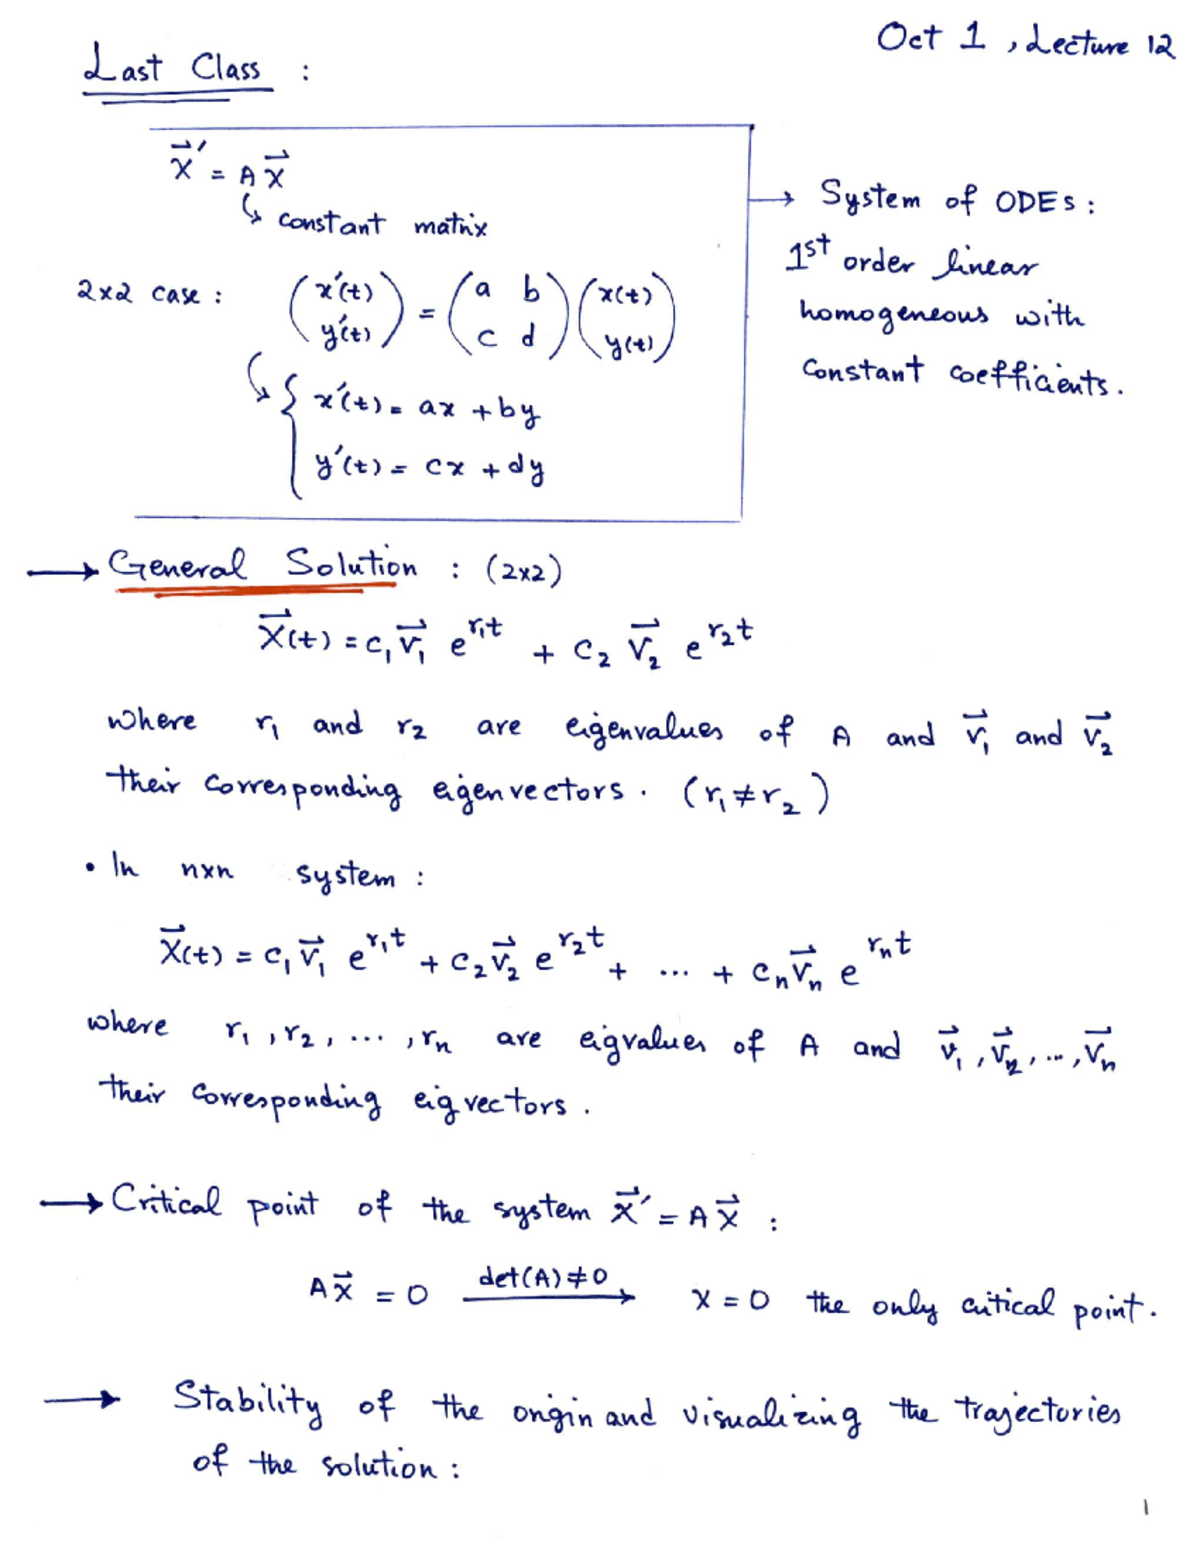 Oct 1, Lecture 12
Last Class :
x⃗' = A x⃗
↳ constant matrix
→ System of ODEs :
1st order linear
homogeneous with
constant coefficients.
2x2 case : (x'(t) y'(t)) = (a b c d) (x(t) y(t))
↳ { x'(t) = ax + by
y'(t) = cx + dy
→ General Solution : (2x2)
X⃗(t) = c₁ v⃗₁ e^{r₁t} + c₂ v⃗₂ e^{r₂t}
where r₁ and r₂ are eigenvalues of A and v⃗₁ and v⃗₂
their corresponding eigenvectors. (r₁ ≠ r₂)
• In nxn system :
X⃗(t) = c₁ v⃗₁ e^{r₁t} + c₂ v⃗₂ e^{r₂t} + ... + cₙ v⃗ₙ e^{rₙt}
where r₁, r₂, ..., rₙ are eigvalues of A and v⃗₁, v⃗₂, ..., v⃗ₙ
their corresponding eigvectors.
→ Critical point of the system x⃗' = A x⃗ :
A x⃗ = 0 det(A) ≠ 0 → x = 0 the only critical point.
→ Stability of the origin and visualizing the trajectories
of the solution :
1